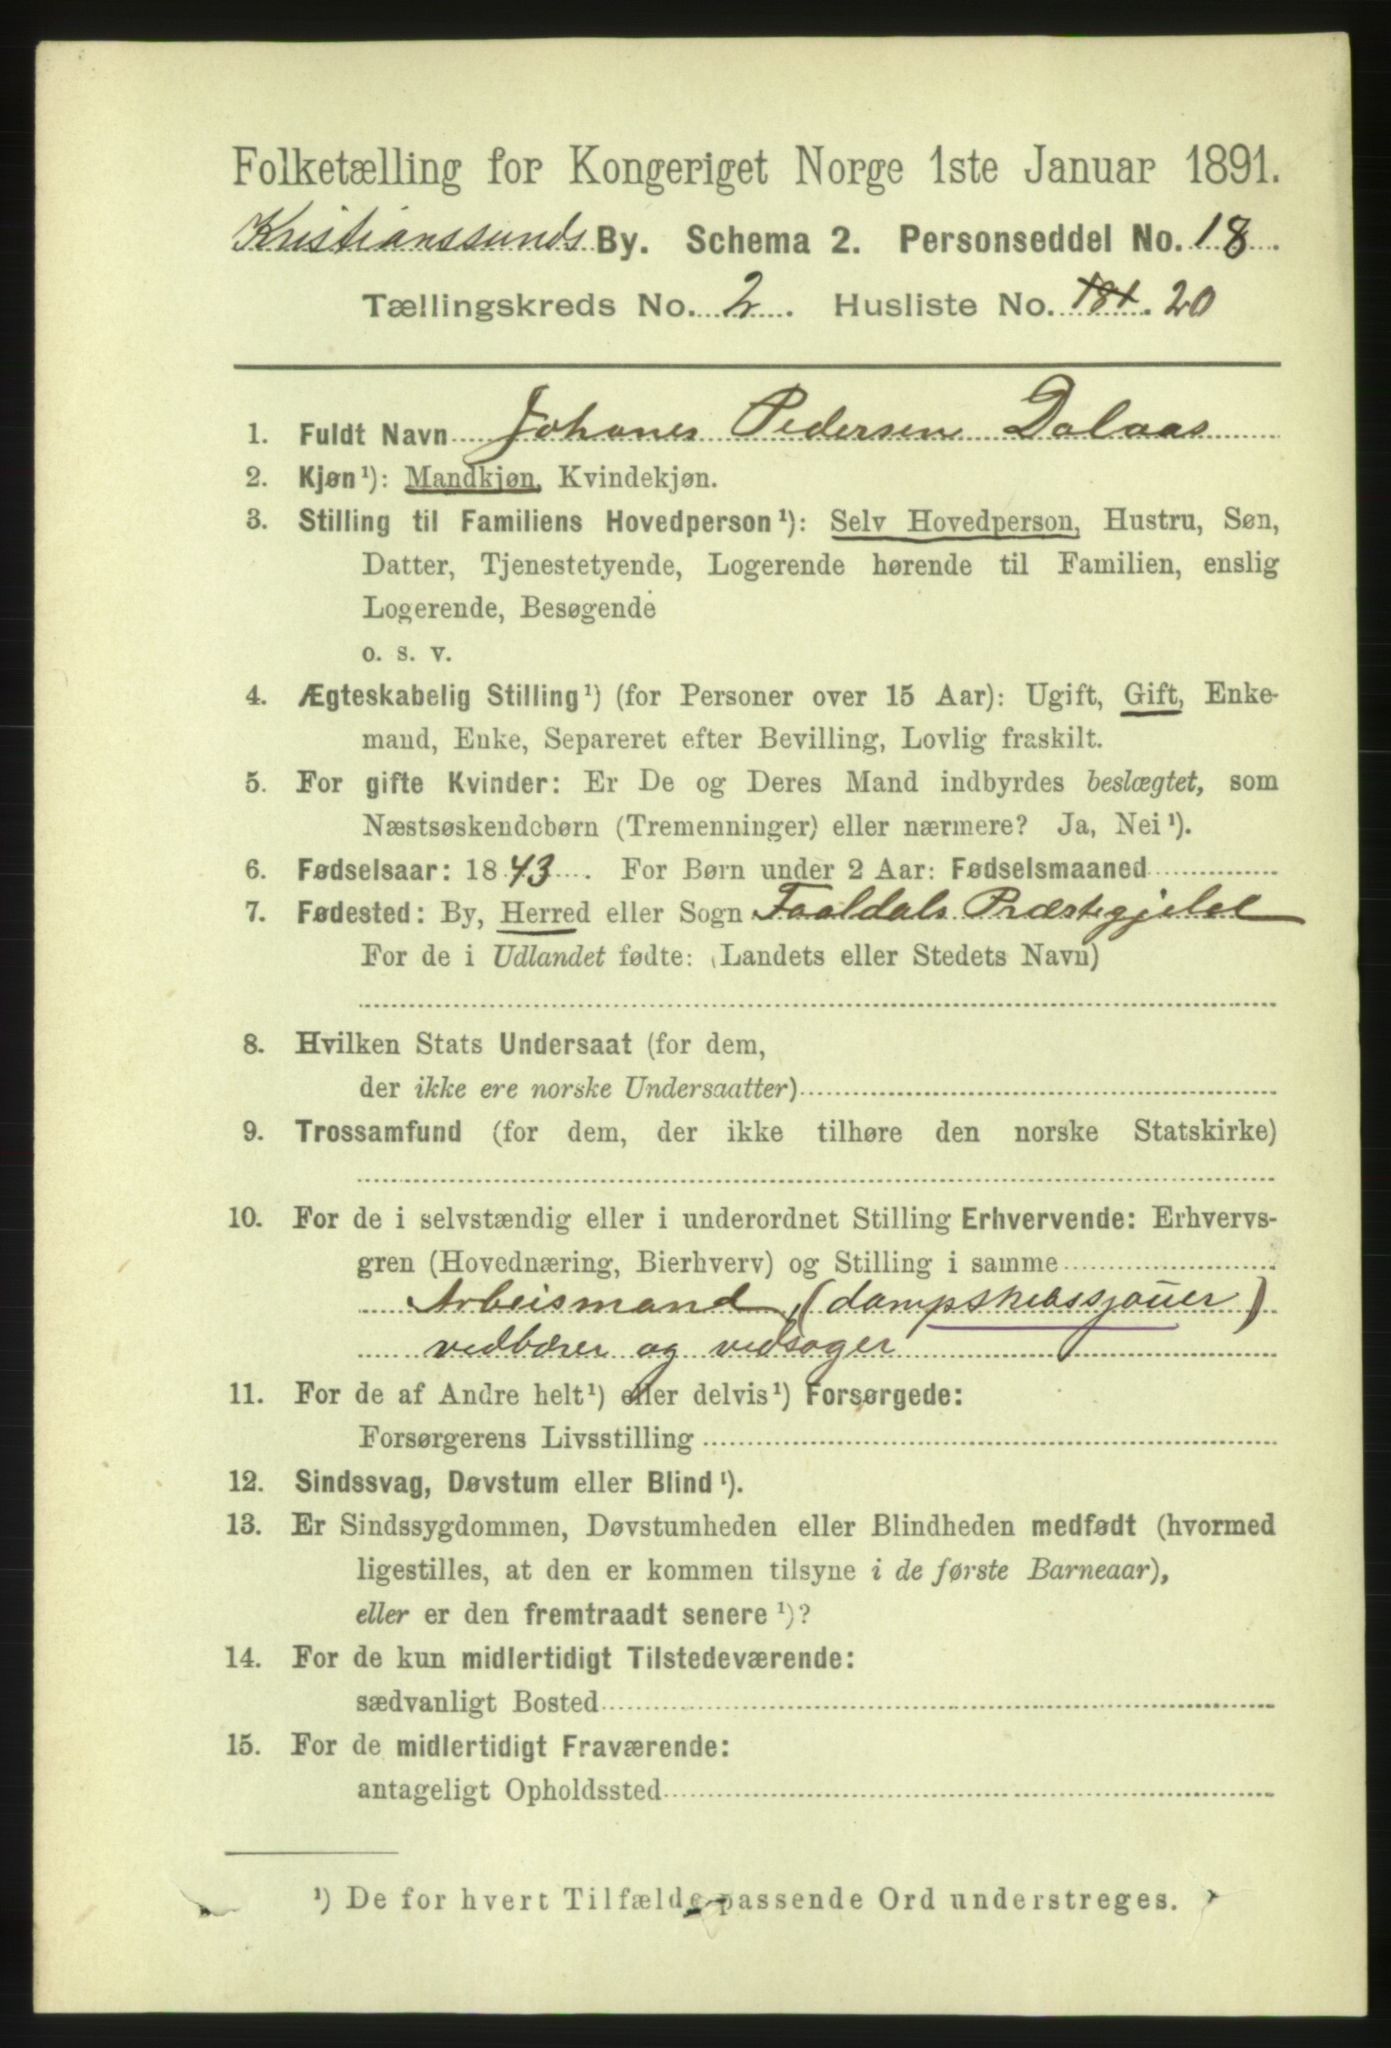 Folketælling for Kongeriget Norge 1ste Januar 1891.
Kristianssunds By. Schema 2. Personseddel No. 18.
Tællingskreds No. 2. Husliste No. 181. 20
1. Fuldt Navn Johanes Pedersen Dalaas
2. Kjøn¹): Mandkjøn, Kvindekjøn.
3. Stilling til Familiens Hovedperson¹): Selv Hovedperson, Hustru, Søn,
Datter, Tjenestetyende, Logerende hørende til Familien, enslig
Logerende, Besøgende
o. s. v.
4. Ægteskabelig Stilling¹) (for Personer over 15 Aar): Ugift, Gift, Enke-
mand, Enke, Separeret efter Bevilling, Lovlig fraskilt.
5. For gifte Kvinder: Er De og Deres Mand indbyrdes beslægtet, som
Næstsøskendebørn (Tremenninger) eller nærmere? Ja, Nei¹).
6. Fødselsaar: 1843. For Børn under 2 Aar: Fødselsmaaned
7. Fødested: By, Herred eller Sogn Præstegjelet
For de i Udlandet fødte: (Landets eller Stedets Navn)
8. Hvilken Stats Undersaat (for dem,
der ikke ere norske Undersaatter)
9. Trossamfund (for dem, der ikke tilhøre den norske Statskirke)
10. For de i selvstændig eller i underordnet Stilling Erhvervende: Erhvervs-
gren (Hovednæring, Bierhverv) og Stilling i samme
Arbeismand, (dampskibssjouer)
vedbærer og vedsager
11. For de af Andre helt¹) eller delvis¹) Forsørgede:
Forsørgerens Livsstilling
12. Sindssvag, Døvstum eller Blind¹).
13. Er Sindssygdommen, Døvstumheden eller Blindheden medfødt (hvormed
ligestilles, at den er kommen tilsyne i de første Barneaar),
eller er den fremtraadt senere¹)?
14. For de kun midlertidigt Tilstedeværende:
sædvanligt Bosted
15. For de midlertidigt Fraværende:
antageligt Opholdssted
¹) De for hvert Tilfælde passende Ord understreges.